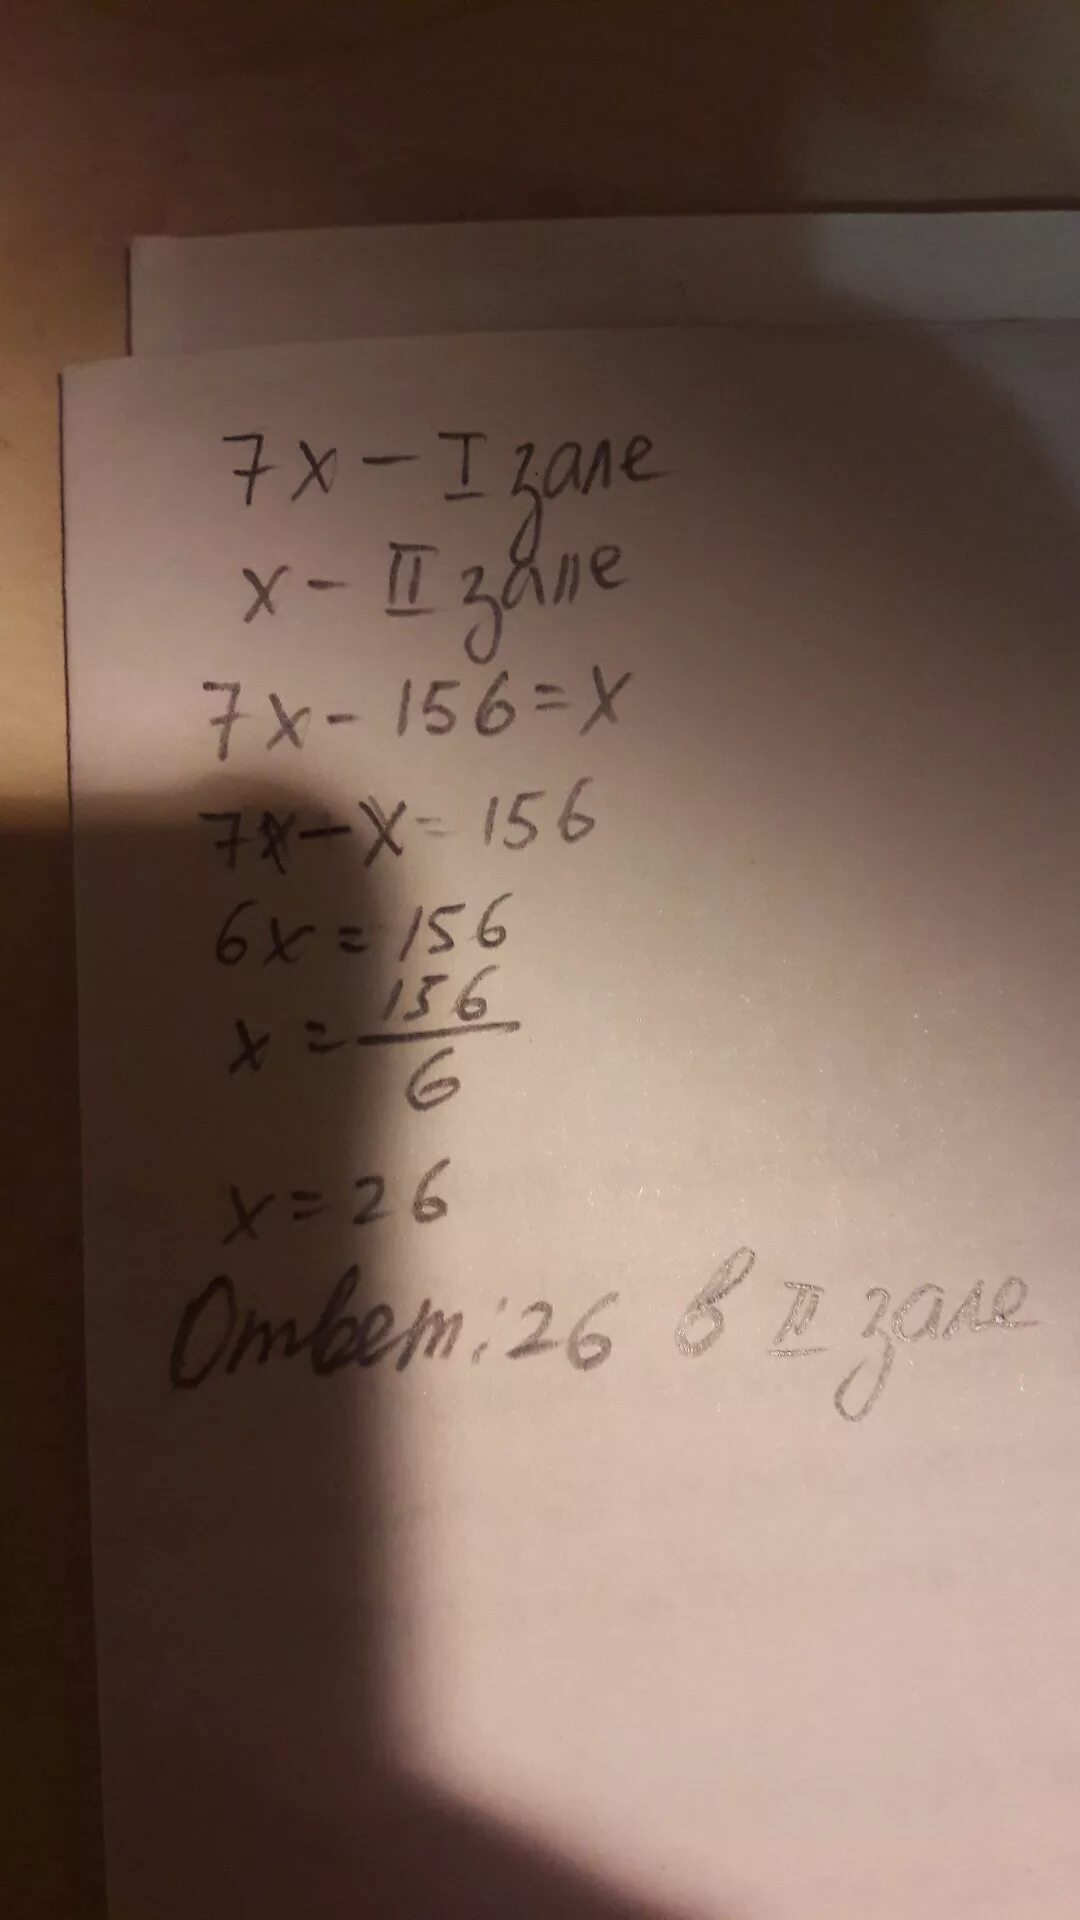 7x - I зале
x - II зале
7x - 156 = x
7x - x = 156
6x = 156
x = 156/6
x = 26
Ответ: 26 в II зале